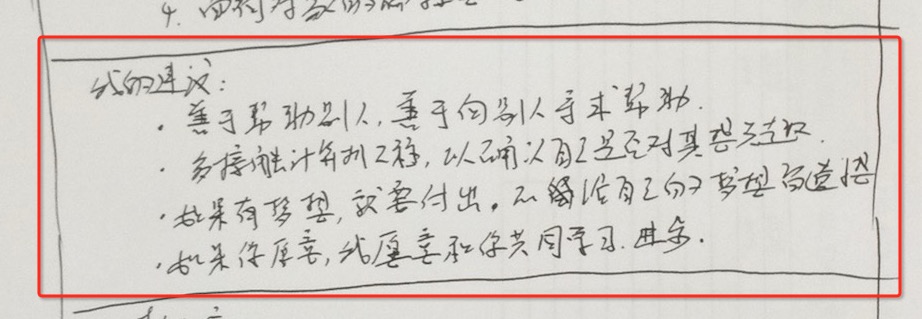 4.
我的建议:
· 善于帮助别人, 善于向别人寻求帮助.
· 多接触计算机工程, 以确认自己是否对其感兴趣.
· 如果有梦想, 就要付出。不给自己的梦想留遗憾
· 如果你愿意, 我愿意和你共同学习.进步.